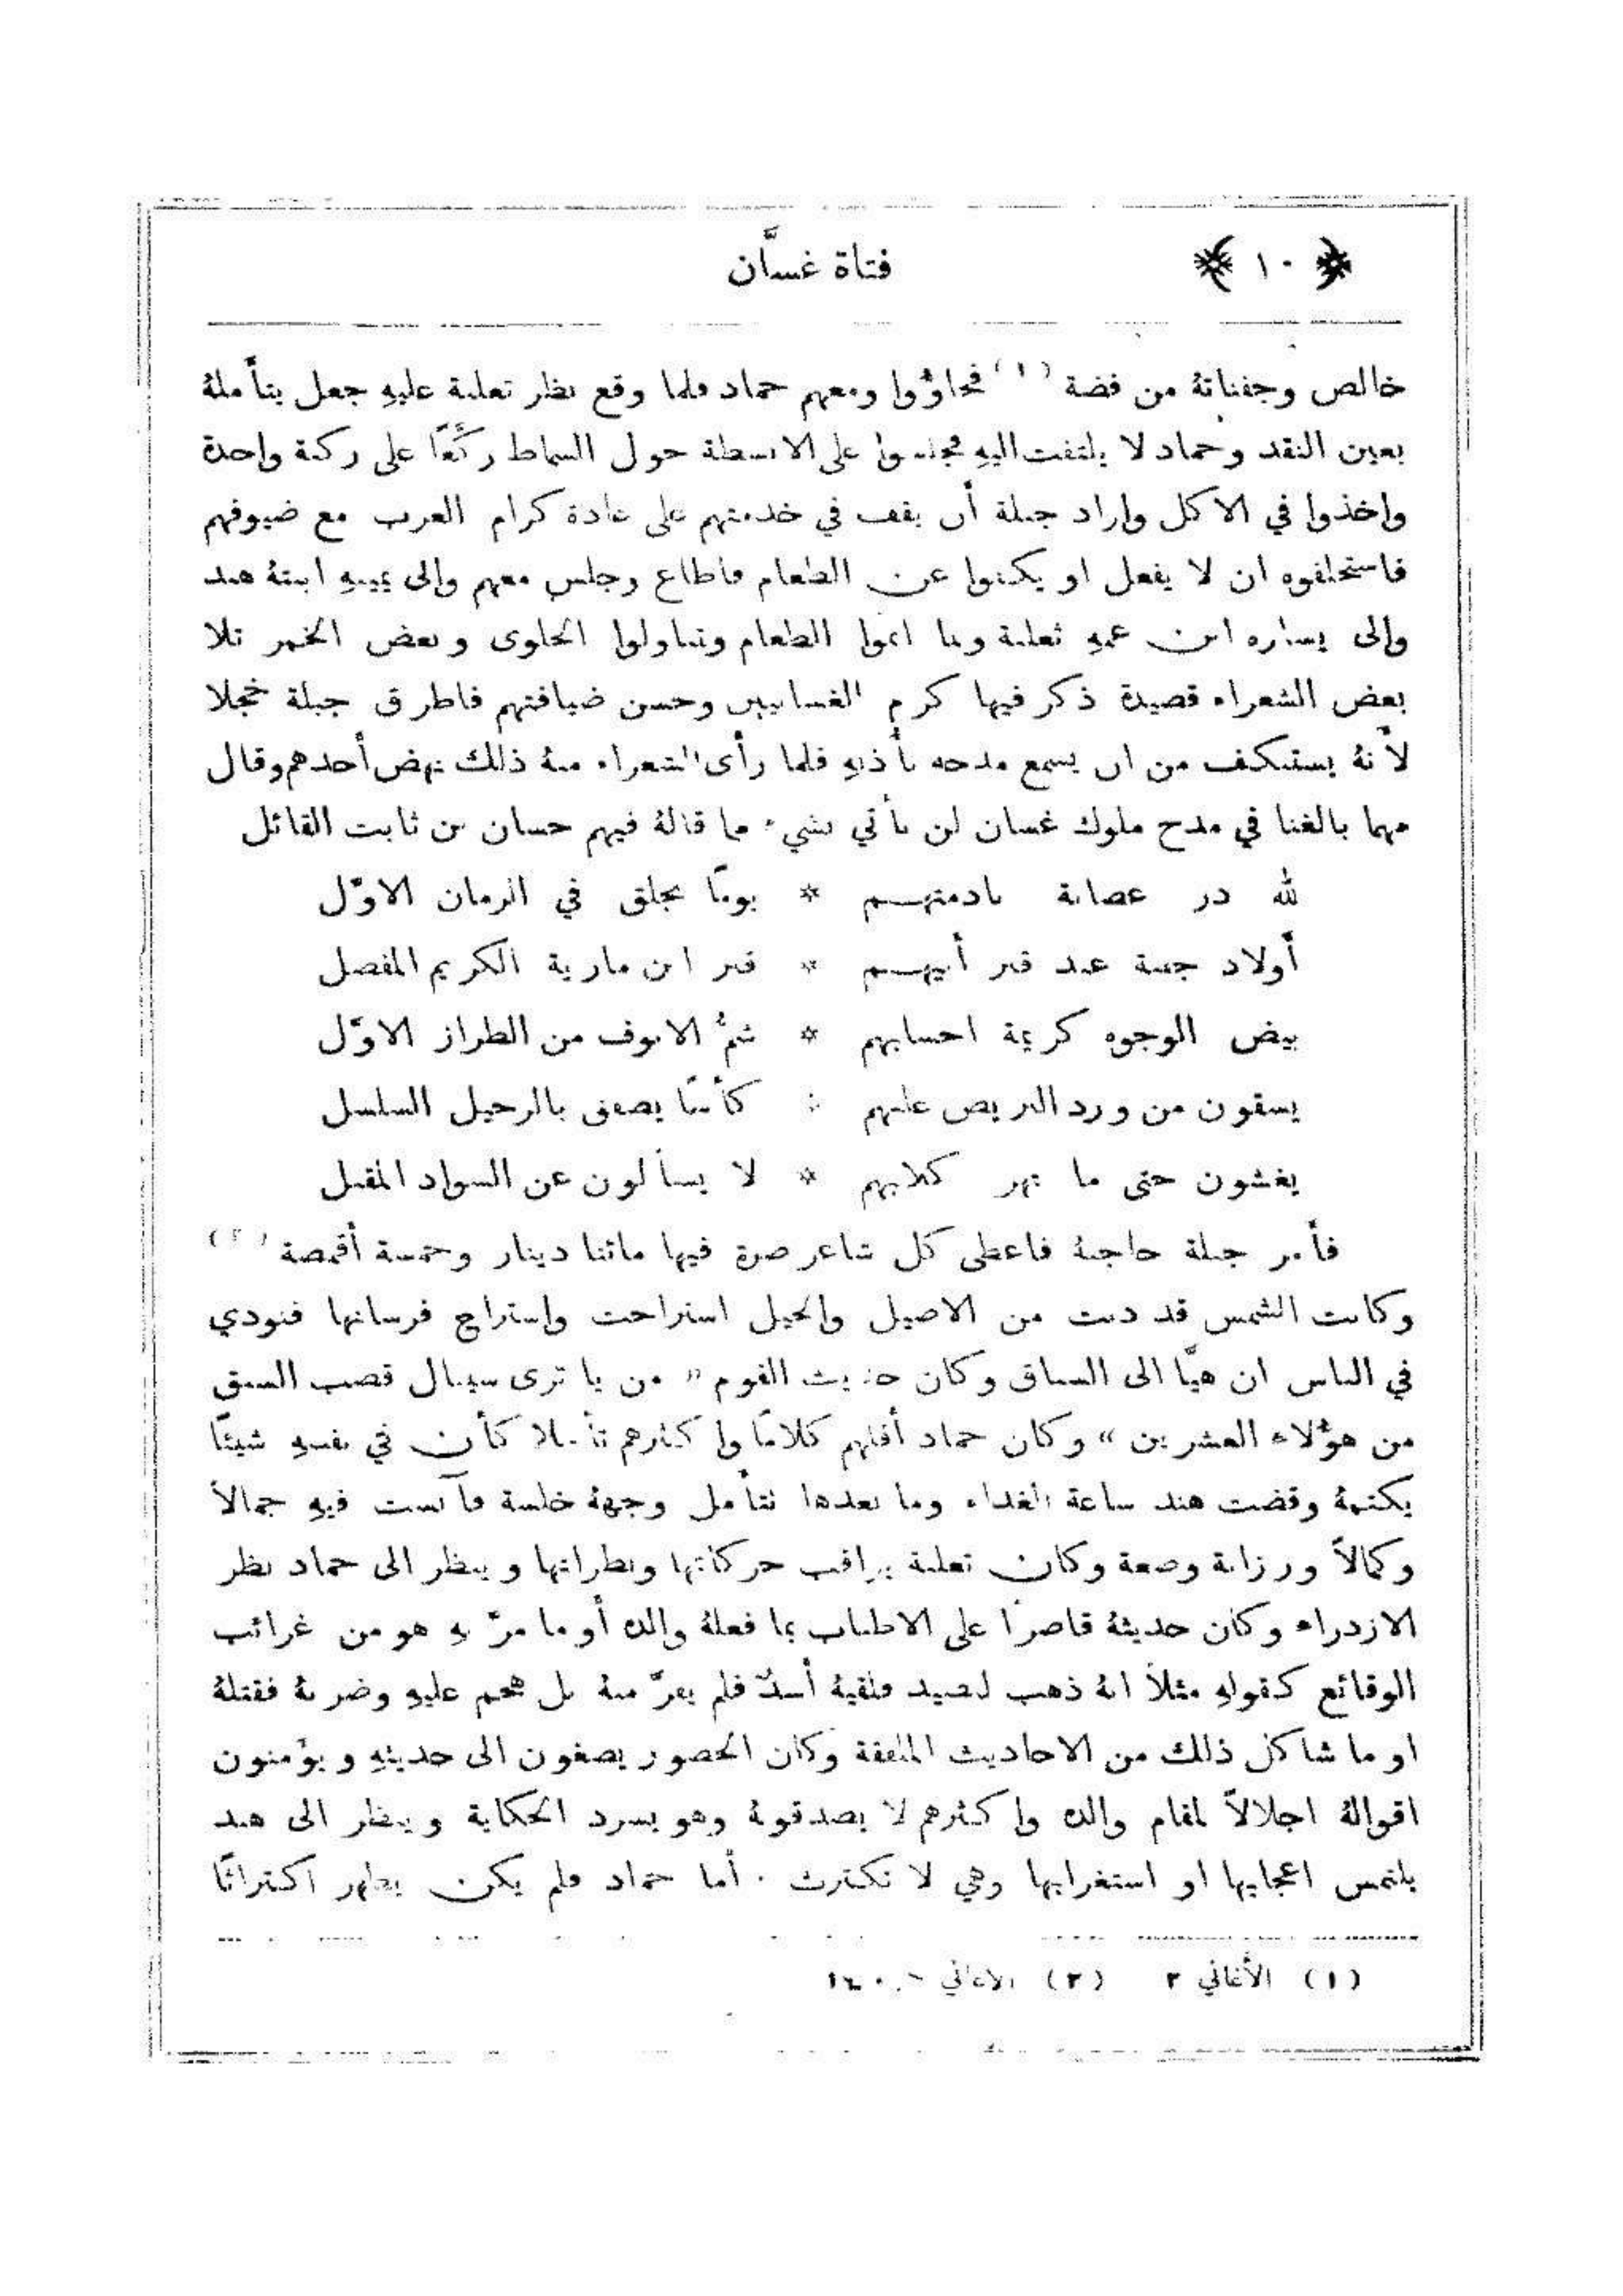 ﴿ ١٠ ﴾ فتاة غسَّان
خالص وجفناتهُ من فضة (١) فجاؤُوا ومعهم حماد فلما وقع نظر ثعلبة عليهِ جعل يتأَملهُ
بعين النقد وحماد لا يلتفت اليهِ فجلسوا على الابسطة حول السماط ركَّعًا على ركبة واحدة
واخذوا في الاكل واراد جبلة أن يقف في خدمتهم على عادة كرام العرب مع ضيوفهم
فاستحلفوه ان لا يفعل او يكفوا عن الطعام فاطاع وجلس معهم والى يمينهِ ابنتهُ هند
والى يساره ابن عمهِ ثعلبة ولما اتموا الطعام وتناولوا الحلوى وبعض الخمر تلا
بعض الشعراء قصيدة ذكر فيها كرم الغسانيين وحسن ضيافتهم فاطرق جبلة خجلا
لأَنهُ يستنكف من ان يسمع مدحه بأذنهِ فلما رأَى الشعراء منهُ ذلك نهض أحدهم وقال
مهما بالغنا في مدح ملوك غسان لن نأتي بشيء مما قالهُ فيهم حسان بن ثابت القائل
لله در عصابة نادمتهـم * يومًا بجلق في الزمان الاوّل
أولاد جفنة عند قبر أبيهـم * قبر ابن مارية الكريم المفضل
بيض الوجوه كريمة احسابهم * شمُّ الانوف من الطراز الاوّل
يسقون من ورد البريص عليهم * كأسًا يصفق بالرحيل السلسل
يغشون حتى ما تهر كلابهم * لا يسأَلون عن السواد المقبل
فأمر جبلة حاجبهُ فاعطى كل شاعر صرة فيها مائتا دينار وخمسة أقمصة (٢)
وكانت الشمس قد دنت من الاصيل والخيل استراحت واستراح فرسانها فنودي
في الناس ان هيَّا الى السباق وكان حديث القوم « من يا ترى سينال قصب السبق
من هؤُلاء العشرين » وكان حماد أقلهم كلامًا واكثرهم تأَملا كأن في نفسهِ شيئًا
يكتمهُ وقضت هند ساعة الغداء وما بعدها تتأَمل وجههُ خلسة فآنست فيهِ جمالاً
وكمالاً ورزانة وصعة وكان ثعلبة يراقب حركاتها ونظراتها وينظر الى حماد نظر
الازدراء وكان حديثهُ قاصرًا على الاطناب بما فعلهُ والده أو ما مرَّ بهِ هو من غرائب
الوقائع كقولهِ مثلاً انهُ ذهب لصيد فلقيهُ أسدٌ فلم يفرَّ منهُ بل هجم عليهِ وضربهُ فقتلهُ
او ما شاكل ذلك من الاحاديث الملفقة وكان الحضور يصغون الى حديثهِ ويؤمنون
اقوالهُ اجلالاً لمقام والده واكثرهم لا يصدقونهُ وهو يسرد الحكاية وينظر الى هند
يلتمس اعجابها او استغرابها وهي لا تكترث . أما حماد فلم يكن يظهر اكتراثًا
(١) الأَغاني ٢ (٢) الاغاني